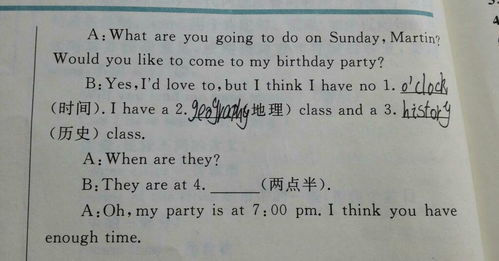 A:What are you going to do on Sunday, Martin?
Would you like to come to my birthday party?
B:Yes,I'd love to,but I think I have no 1. o'clock
(时间). I have a 2. geography地理) class and a 3. history
(历史) class.
A:When are they?
B:They are at 4. ______(两点半).
A:Oh,my party is at 7:00 pm. I think you have
enough time.